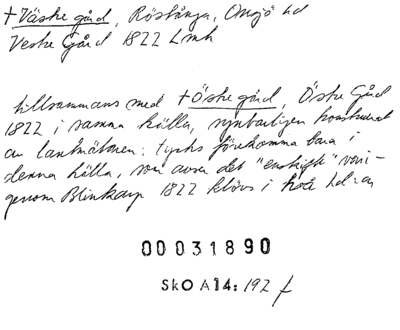 + Västre gård, Röstånga, Onsjö hd
Vestre Gård 1822 Lmh
tillsammans med + Östre gård, Östre Gård
1822 i samma källa, synbarligen konstruerat
av lantmätaren; tycks förekomma bara i
denna källa, som avser det "enskifte" vari-
genom Blinkarp 1822 klövs i två hd:an
00031890
SkO A14: 192 f